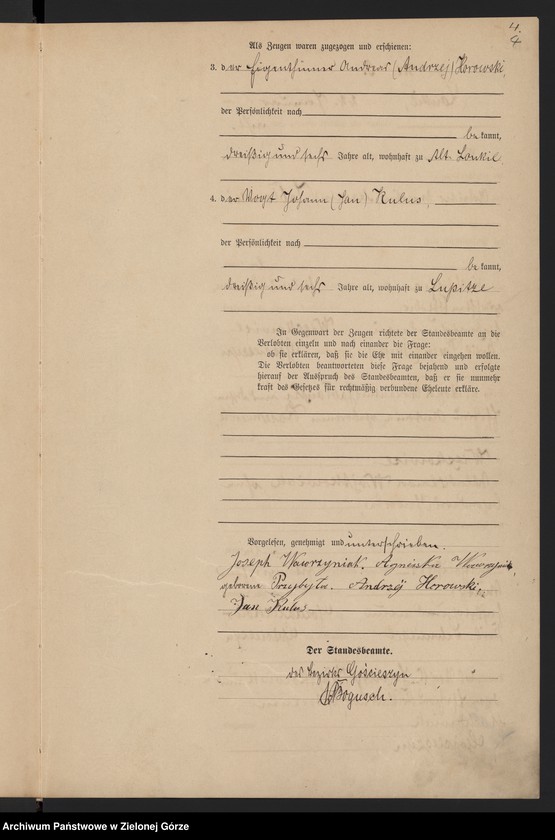 4.
4
Als Zeugen waren zugezogen und erschienen:
3. der Eigenthümer Andreas (Andrzej) Horowski,
der Persönlichkeit nach
bekannt,
dreißig und sechs Jahre alt, wohnhaft zu Alt-
4. der Vogt Johann (Jan) Kulus,
der Persönlichkeit nach
bekannt,
dreißig und sechs Jahre alt, wohnhaft zu Lupitze
In Gegenwart der Zeugen richtete der Standesbeamte an die
Verlobten einzeln und nach einander die Frage:
ob sie erklären, daß sie die Ehe mit einander eingehen wollen.
Die Verlobten beantworteten diese Frage bejahend und erfolgte
hierauf der Ausspruch des Standesbeamten, daß er sie nunmehr
kraft des Gesetzes für rechtmäßig verbundene Eheleute erkläre.
Vorgelesen, genehmigt und unterschrieben.
Joseph Wawrzyniak, Agnieska
geborene Przybyła. Andrzéj Horowski,
Jan Kulus
Der Standesbeamte.
des Bezirks Gościeszyn
Bogusch.
Archiwum Państwowe w Zielonej Górze